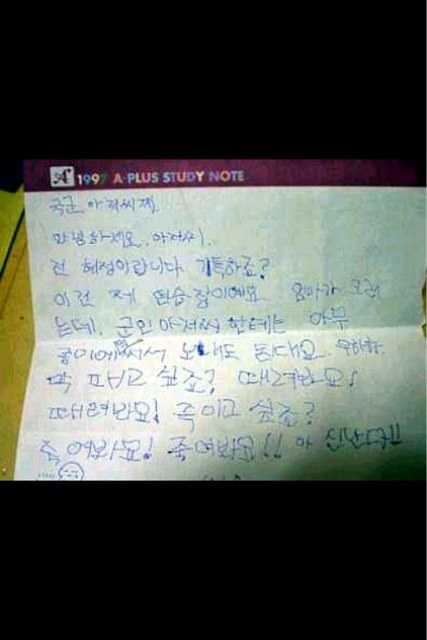 A+ 1997 A-PLUS STUDY NOTE
국군 아저씨께.
안녕하세요. 아저씨.
전 혜정이랍니다 기특하죠?
이건 제 연습장이에요. 엄마가 그러
는데, 군인 아저씨 한테는 아무
종이에 써서 보내도 된대요. 우하하.
막 패고 싶죠? 때려봐요!
때려봐요! 죽이고 싶죠?
죽여봐요! 죽여봐요!! 아 신난다!!